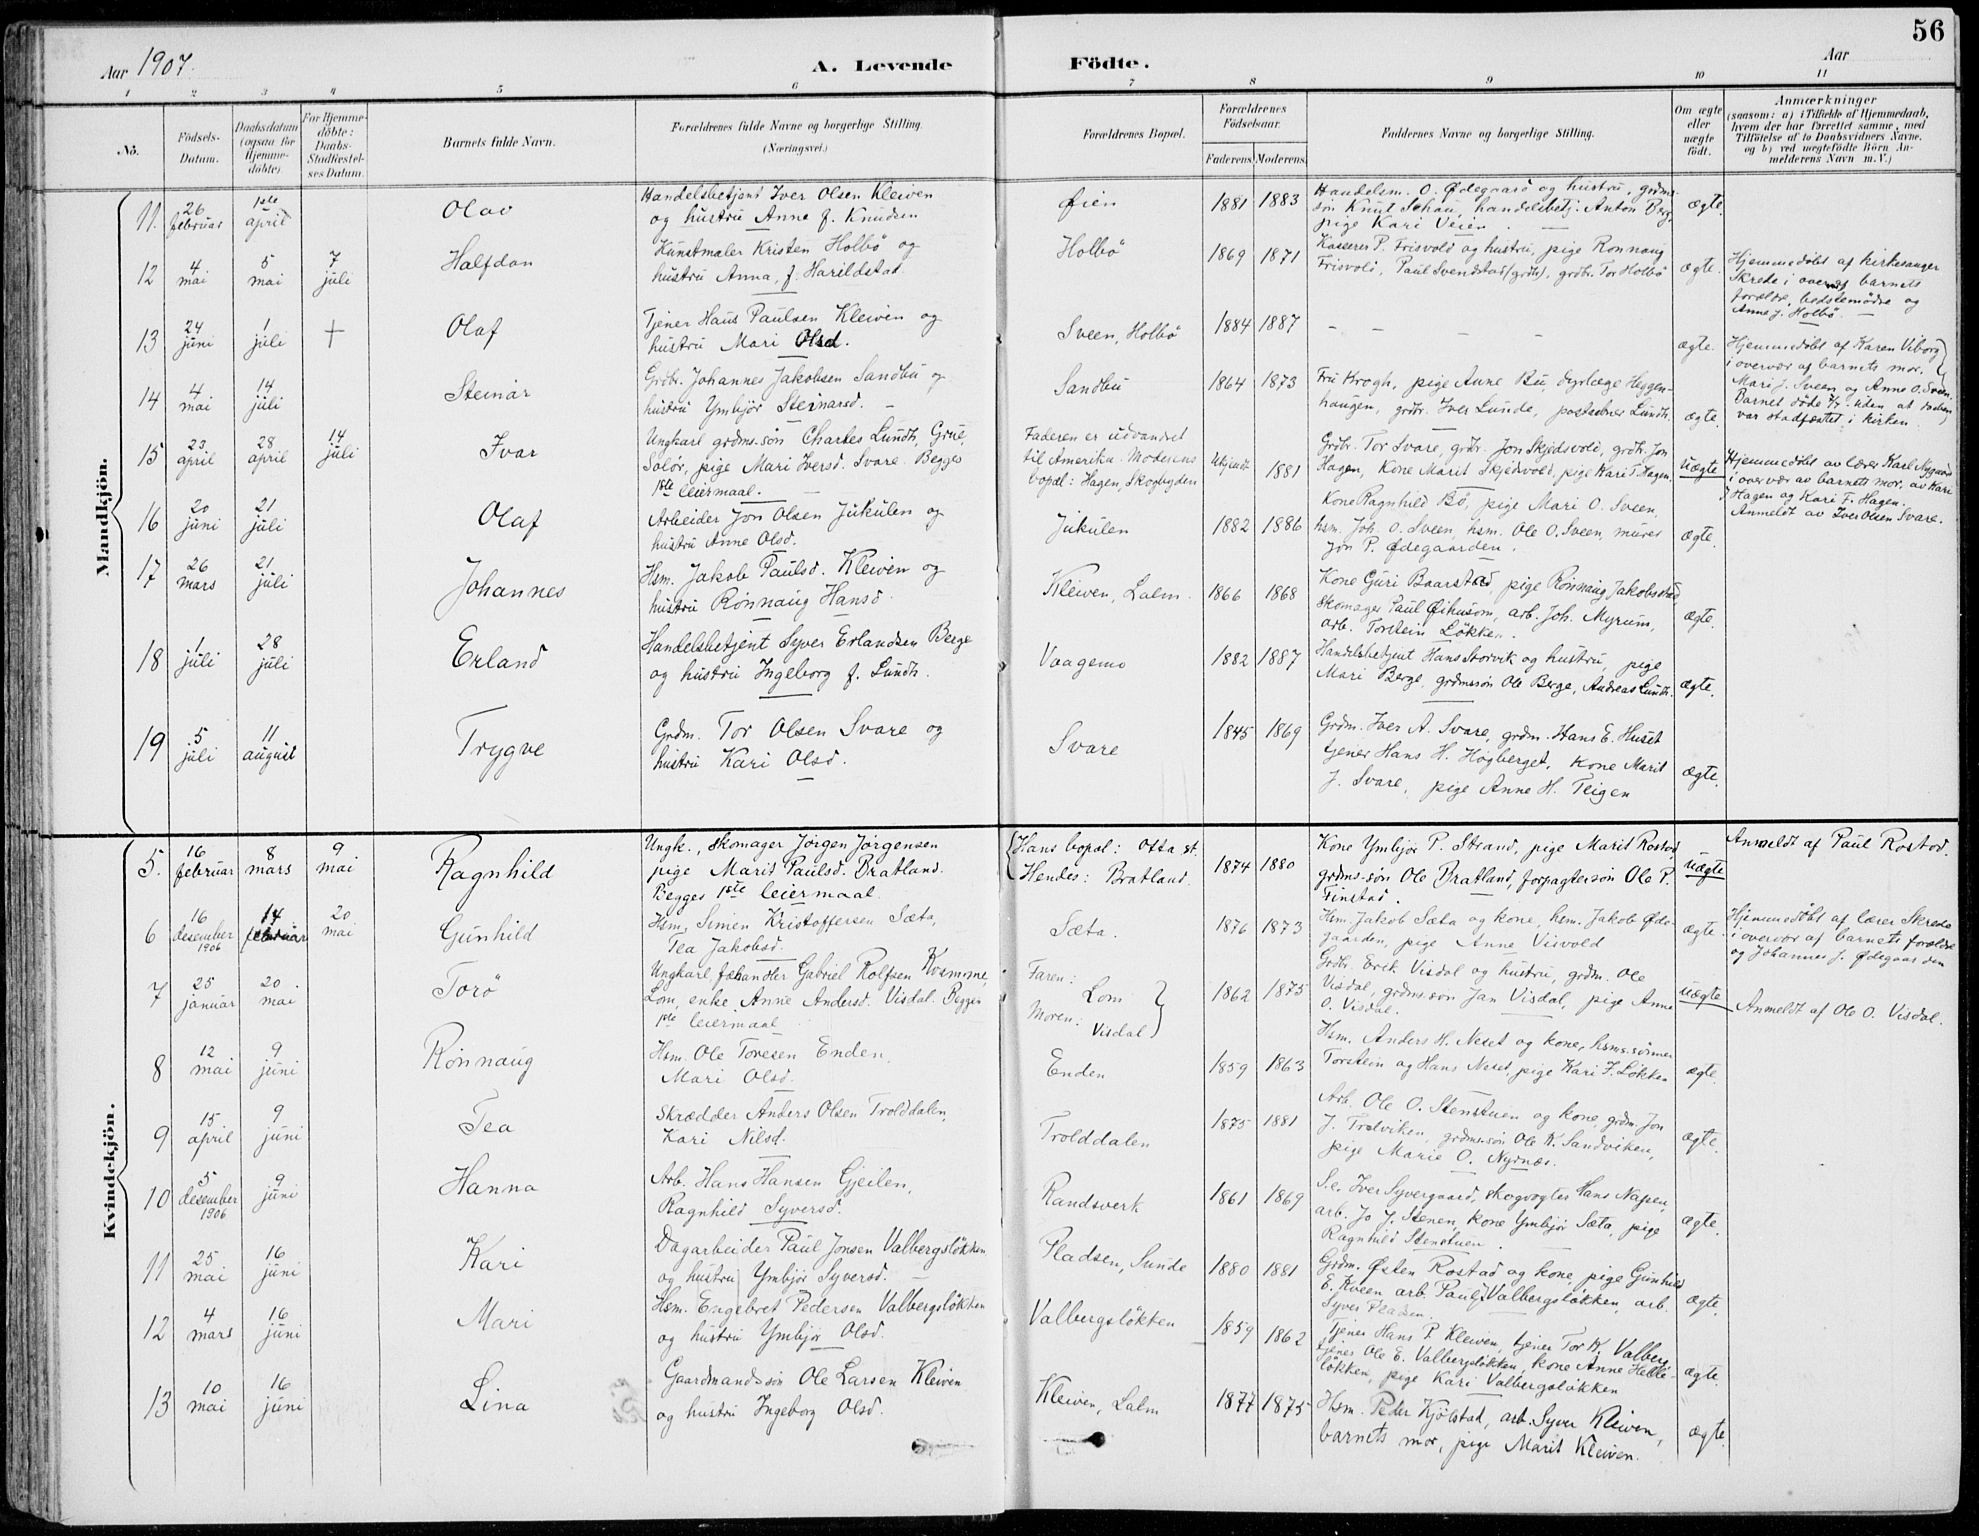 56
Aar 1907.
A. Levende Födte.
Aar
1 2 3 4 5 6 7 8 9 10 11
No.
Födsels-Datum.
Daabsdatum (ogsaa for Hjemmedöbte)
For Hjemmedöbte: Daabs-Stadfæstelses Datum.
Barnets fulde Navn.
Forældrenes fulde Navne og borgerlige Stilling. (Næringsvei.)
Forældrenes Bopæl.
Forældrenes Födselsaar.
Faderens. Moderens.
Faddernes Navne og borgerlige Stilling.
Om ægte eller uægte födt.
Anmærkninger (saasom: a) i Tilfælde af Hjemmedaab, hvem der har forrettet samme, med Tilföielse af to Daabsvidners Navne. og b) ved uægtefödte Börn Anmelderens Navn m. V.)
Mandkjön.
11. 26 februar 1ste april Olav
Handelsbetjent Iver Olsen Kleiven
og hustru Anne f. Knudsen
Øien 1881 1883
Handelsm. O. Ødegaard og hustru, grdms-
søn Knut Schau, handelsbetj. Anton Berg,
pige Kari Veien.
ægte.
12 4 mai 5 mai 7 juli Halfdan
Kunstmaler Kristen Holbö og
hustru Anna, f. Harildstad.
Holbö 1869 1871
Kasserer P. Frisvold og hustru, pige Ronnaug
Frisvold, Paul Svendstad (grdb), grdbr. Tor Holbö
ægte.
Hjemmedöbt af kirkesanger
Skrede i overvær barnets
forældre, bedstemødre og
Anne J. Holbö.
13 24 juni 1 juli + Olaf
Tjener Hans Paulsen Kleiven og
hustru Mari Olsd.
Sveen, Holbö 1884 1887 - - - -
ægte.
Hjemmedöbt af Karen Viborg
i overvær af barnets mor,
Mari J. Sveen og Anne O. Sveen.
Barnet døde 7/7 uten at daaben
var stadfæstet i kirken.
14 4 mai 14 juli Steinar
Grdbr. Johannes Jakobsen Sandbu og
hustru Ymbjör Steinarsd.
Sandbu 1864 1873
Fru Krogh, pige Anne Bu, dyrlæge Heggen-
haugen, grdbr. Iver Lunde, postaabner Lundh.
ægte.
15 23 april 28 april 14 juli Ivar
Ungkarl grdms.søn Charles Lundh, Grue,
Solör, pige Mari Iversd. Svare. Begges
1ste leiermaal.
Faderen er udvandret
til Amerika. Moderens
bopæl: Hagen, Skogbygden
Ukjendt 1881
Grdbr. Tor Svare, grdbr. Jon Skjedsvold, grdbr. Jon
Hagen, Kone Marit Skjedsvold, pige Kari T. Hagen.
uægte
Hjemmedöbt av lærer Karl Nygaard
i overvær av barnets mor, av Kari
J Hagen og Kari F. Hagen.
Anmeldt av Iver Olsen Svare.
16 20 juni 21 juli Olaf
Arbeider Jon Olsen Jukulen og
hustru Anne Olsd.
Jukulen 1882 1886
Kone Ragnhild Bö, pige Mari O. Sveen,
hsm. Joh. O. Sveen, hsm. Ole O. Sveen, murer
Jon P. Ødegaarden.
ægte.
17 26 mars 21 juli Johannes
Hsm. Jakob Paulsd. Kleiven og
hustru Rönnaug Hansd.
Kleiven, Lalm. 1866 1868
Kone Guri Baarstad, pige Rönnaug Jakobsstad,
skomager Paul Øihusom, arb. Joh. Myrum,
arb. Torstein Løkken.
ægte.
18 1 juli 28 juli Erland
Handelsbetjent Syver Erlandsen Berge
og hustru Ingeborg f. Lundh.
Vaagemo 1882 1887
Handelsbetjent Hans Storvik og hustru, pige
Mari Berge, grdmssön Ole Berge, Andreas Lundh.
ægte.
19 5 juli 11 august Trygve
Grdm. Tor Olsen Svare og
hustru Kari Olsd.
Svare 1845 1869
Grdm. Iver A. Svare, grdm. Hans E. Huset
tjener Hans H. Høgberget, kone Marit
J. Svare, pige Anne H. Teigen
ægte.
Kvindekjön.
5. 16 februar 8 mars 9 mai Ragnhild
Ungk., skomager Jørgen Jørgensen
pige Marit Paulsd. Bratland.
Begges 1ste leiermaal.
Hans bopæl: Otta st.
Hendes: Bratland.
1874 1880
Kone Ymbjör P. Strand, pige Marit Rostad,
grdms.sön Ole Bratland, forpagtersön Ole P.
Finstad.
uægte
Anmeldt af Paul Rostad.
6 16 desember 1906 14 februar 20 mai Gunhild
Hsm. Simen Kristoffersen Sæta,
Tea Jakobsd.
Sæta. 1876 1873
Hsm. Jakob Sæta og kone, hsm. Jakob Øde-
gaarden, pige Anne Visvold
ægte.
Hjemmedöbt af lærer Skrede
i overvær af barnets forældre
og Johannes J. Ødegaarden
7 25 januar 20 mai Torö
Ungkarl fæhandler Gabriel Rolfsen Kvamme,
Lom, enke Anne Andersd. Visdal. Begges
1ste leiermaal
Faren: Lom
Moren: Visdal
1862 1875
Grdbr. Erik Visdal og hustru, grdm. Ole
Visdal, grdms.søn Jan Visdal, pige Anne
O. Visdal.
uægte
Anmeldt af Ole O. Visdal.
8 12 mai 9 juni Rönnaug
Hsm. Ole Toresen Enden,
Mari Olsd.
Enden 1859 1863
Hsm. Anders H. Neset og kone, hsms.sønner
Torstein og Hans Neset, pige Kari F. Løkken
ægte.
9 15 april 9 juni Tea
Skrædder Anders Olsen Trolddalen,
Kari Nilsd.
Trolddalen 1875 1881
Arb. Ole O. Stenstuen og kone, grdm. Jon
J. Trolviken, grdms.søn Ole K. Sandviken,
pige Marie O. Nyrnæs.
ægte.
10 5 desember 1906 9 juni Hanna
Arb. Hans Hansen Gjeilen,
Ragnhild Syversd.
Randsverk 1861 1869
S.e. Iver Syvergaard, skogvogter Hans Napen,
arb. Jo J. Stenen, kone Ymbjör Sæta, pige
Ragnhild Stenstuen.
ægte.
11 25 mai 16 juni Kari
Dagarbeider Paul Jonsen Valbergsløkken
og hustru Ymbjör Syversd.
Pladsen, Sunde 1880 1881
Grdm. Østen Rostad og kone, pige Gunhild
E. Kveen arb. Paul J Valbergsløkken, arb.
Syver Pladsen.
ægte.
12 4 mars 16 juni Mari
Hsm. Engebret Pedersen Valbergsløkken
og hustru Ymbjör Olsd.
Valbergsløkken 1859 1862
Tjener Hans P. Kleiven, tjener Tor K. Valberg,
tjener Ole E. Valbergsløkken, kone Anne Helle-
løkken, pige Kari Valbergsløkken
ægte.
13 10 mai 16 juni Lina
Gaardmandssön Ole Larsen Kleiven
og hustru Ingeborg Olsd.
Kleiven, Lalm 1877 1875
Hsm. Peder Kjølstad, arb. Syver Kleiven,
barnets mor, pige Marit Kleiven.
ægte.